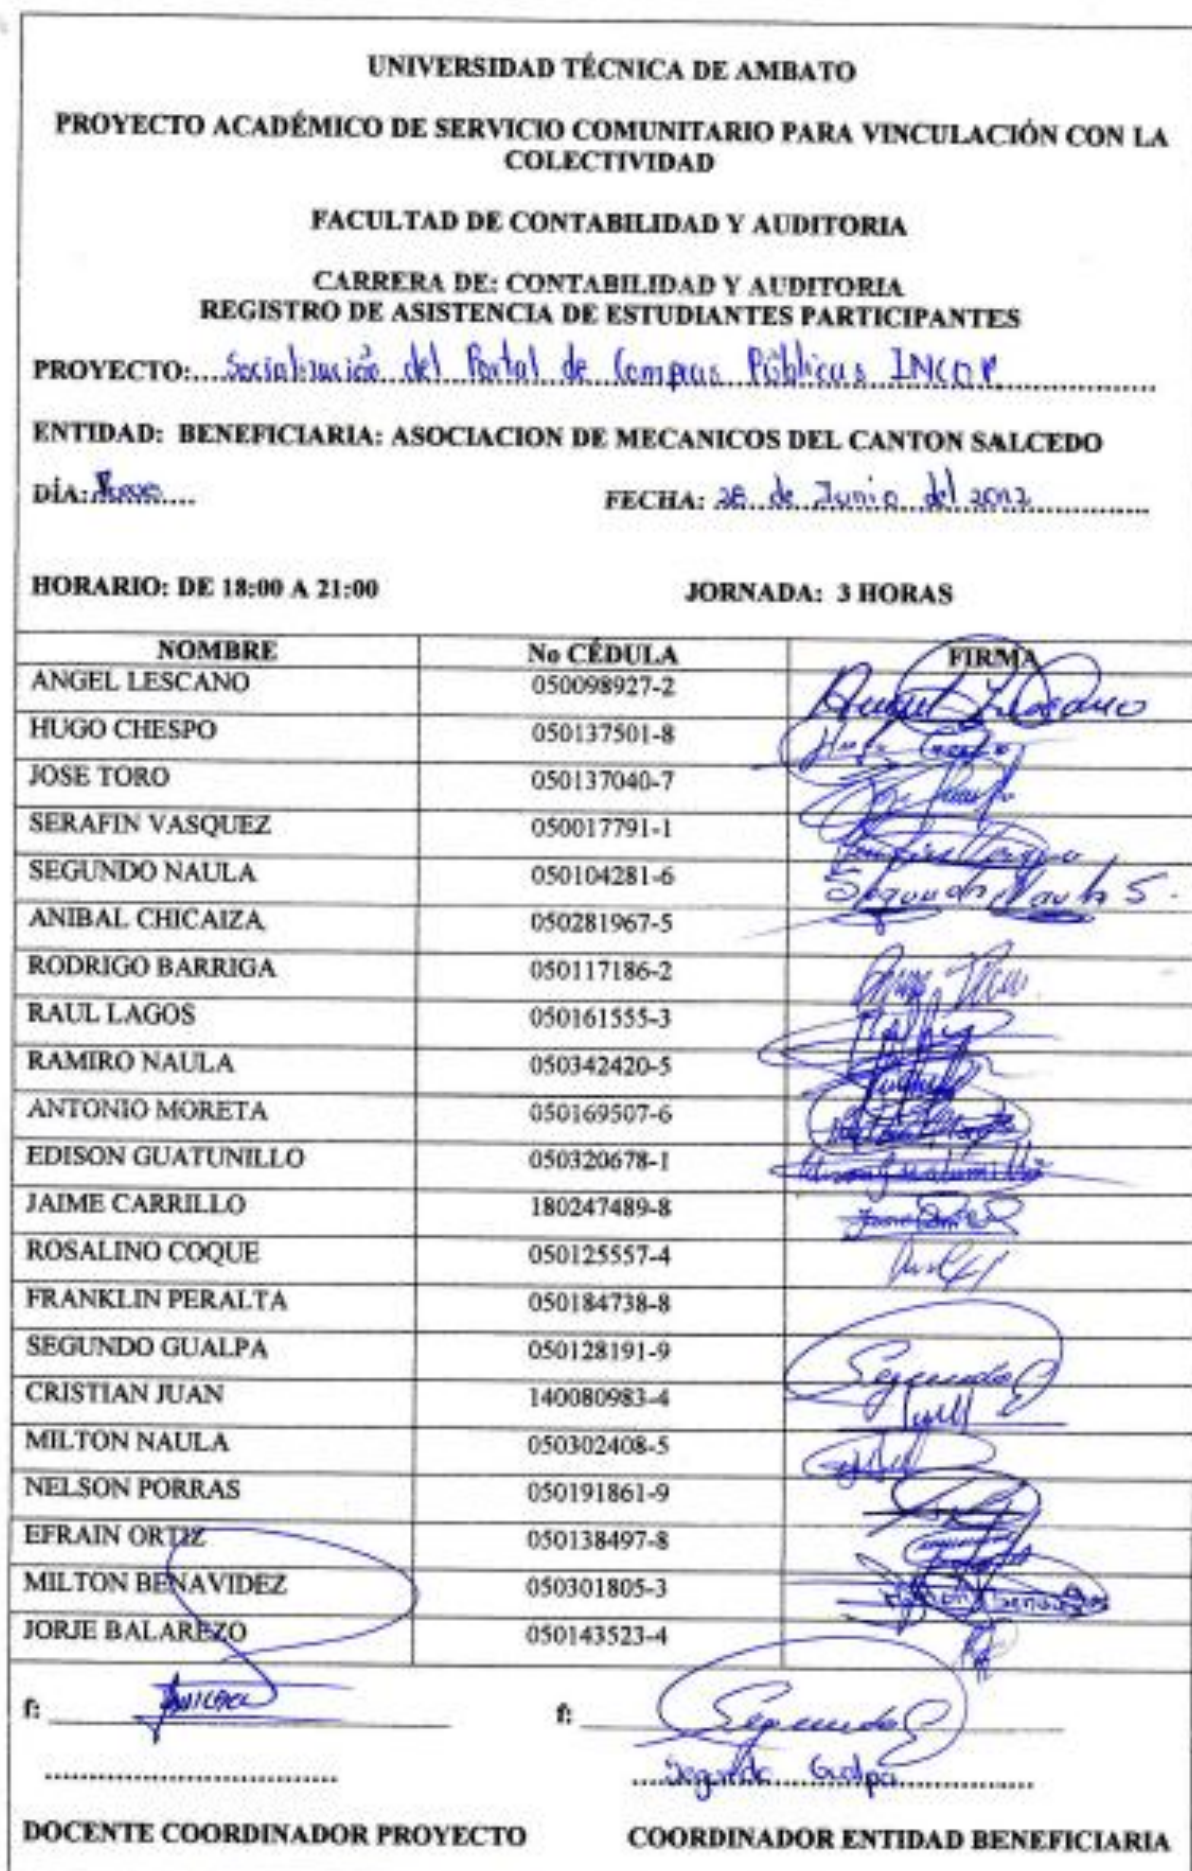 UNIVERSIDAD TÉCNICA DE AMBATO
PROYECTO ACADÉMICO DE SERVICIO COMUNITARIO PARA VINCULACIÓN CON LA
COLECTIVIDAD
FACULTAD DE CONTABILIDAD Y AUDITORIA
CARRERA DE: CONTABILIDAD Y AUDITORIA
REGISTRO DE ASISTENCIA DE ESTUDIANTES PARTICIPANTES
PROYECTO: Socialización del Portal de Compras Públicas INCOP
ENTIDAD: BENEFICIARIA: ASOCIACION DE MECANICOS DEL CANTON SALCEDO
DÍA: FECHA: 28 de Junio del 2012
HORARIO: DE 18:00 A 21:00 JORNADA: 3 HORAS
NOMBRE No CÉDULA FIRMA
ANGEL LESCANO 050098927-2
HUGO CHESPO 050137501-8
JOSE TORO 050137040-7
SERAFIN VASQUEZ 050017791-1
SEGUNDO NAULA 050104281-6 Segundo Naula S.
ANIBAL CHICAIZA 050281967-5
RODRIGO BARRIGA 050117186-2
RAUL LAGOS 050161555-3
RAMIRO NAULA 050342420-5
ANTONIO MORETA 050169507-6
EDISON GUATUNILLO 050320678-1
JAIME CARRILLO 180247489-8
ROSALINO COQUE 050125557-4
FRANKLIN PERALTA 050184738-8
SEGUNDO GUALPA 050128191-9 Segundo
CRISTIAN JUAN 140080983-4
MILTON NAULA 050302408-5
NELSON PORRAS 050191861-9
EFRAIN ORTIZ 050138497-8
MILTON BENAVIDEZ 050301805-3
JORJE BALAREZO 050143523-4
f: f: Segundo
Segundo Gualpa
DOCENTE COORDINADOR PROYECTO COORDINADOR ENTIDAD BENEFICIARIA